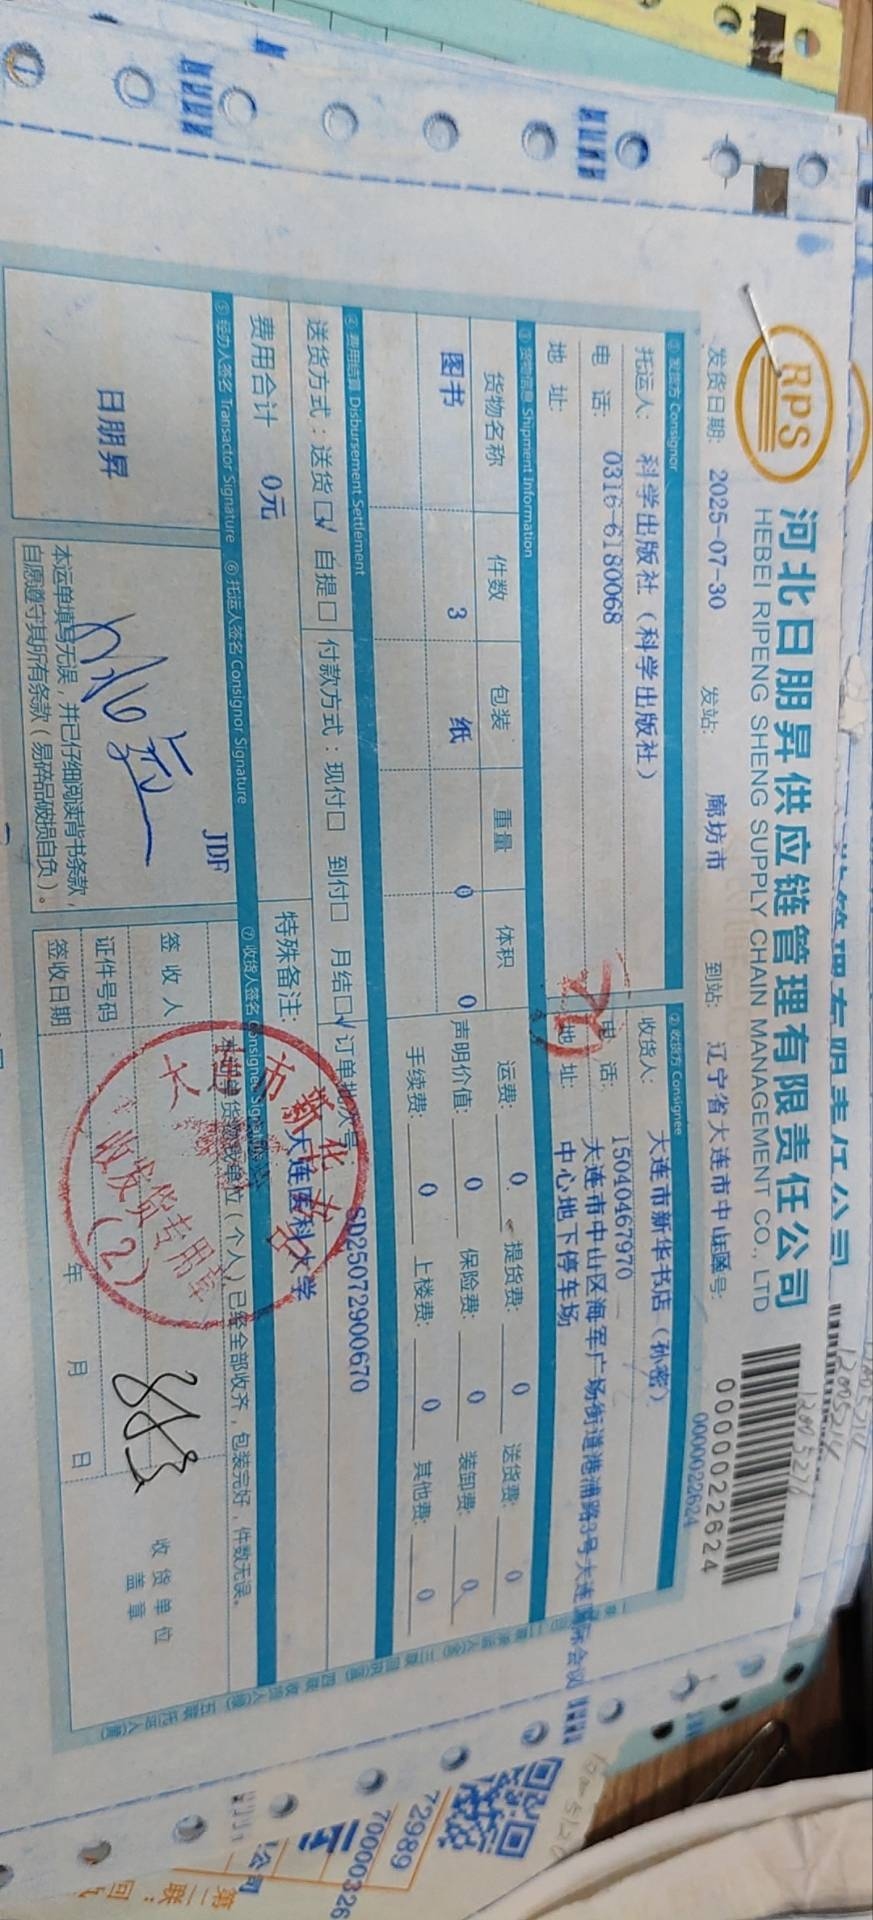 RPS
河北日朋昇供应链管理有限责任公司
HEBEI RIPENG SHENG SUPPLY CHAIN MANAGEMENT CO., LTD
0000022624
0000022624
发货日期: 2025-07-30 发站: 廊坊市 到站: 辽宁省大连市中山区
① 发货方 Consignor
托运人: 科学出版社（科学出版社）
电 话: 0316-6180068
地 址:
② 收货方 Consignee
收货人: 大连市新华书店（孙密）
电 话: 15040467970
地 址: 大连市中山区海军广场街道港浦路3号大连国际会议
中心地下停车场
③ 货物信息 Shipment Information
货物名称 件数 包装 重量 体积
图书 3 纸 0 0
运费: 0 提货费: 0 送货费: 0
声明价值: 0 保险费: 0 装卸费: 0
手续费: 0 上楼费: 0 其他费: 0
④ 费用结算 Disbursement Settlement
送货方式：送货□√ 自提□ 付款方式：现付□ 到付□ 月结□√ 订单批次号 SD25072900670
费用合计 0元
特殊备注: 大连医科大学
⑤ 经办人签名 Transactor Signature
⑥ 托运人签名 Consignor Signature
⑦ 收货人签名 Consignee Signature
日朋昇
JDF
本运单填写无误，并已仔细阅读背书条款，
自愿遵守其所有条款（易碎品破损自负）。
单位（个人）已经全部收齐，包装完好，件数无误。
签 收 人
证件号码
签收日期 年 月 日
收 货 单 位
盖 章
收发货专用章
（2）
72989
70000326
公司